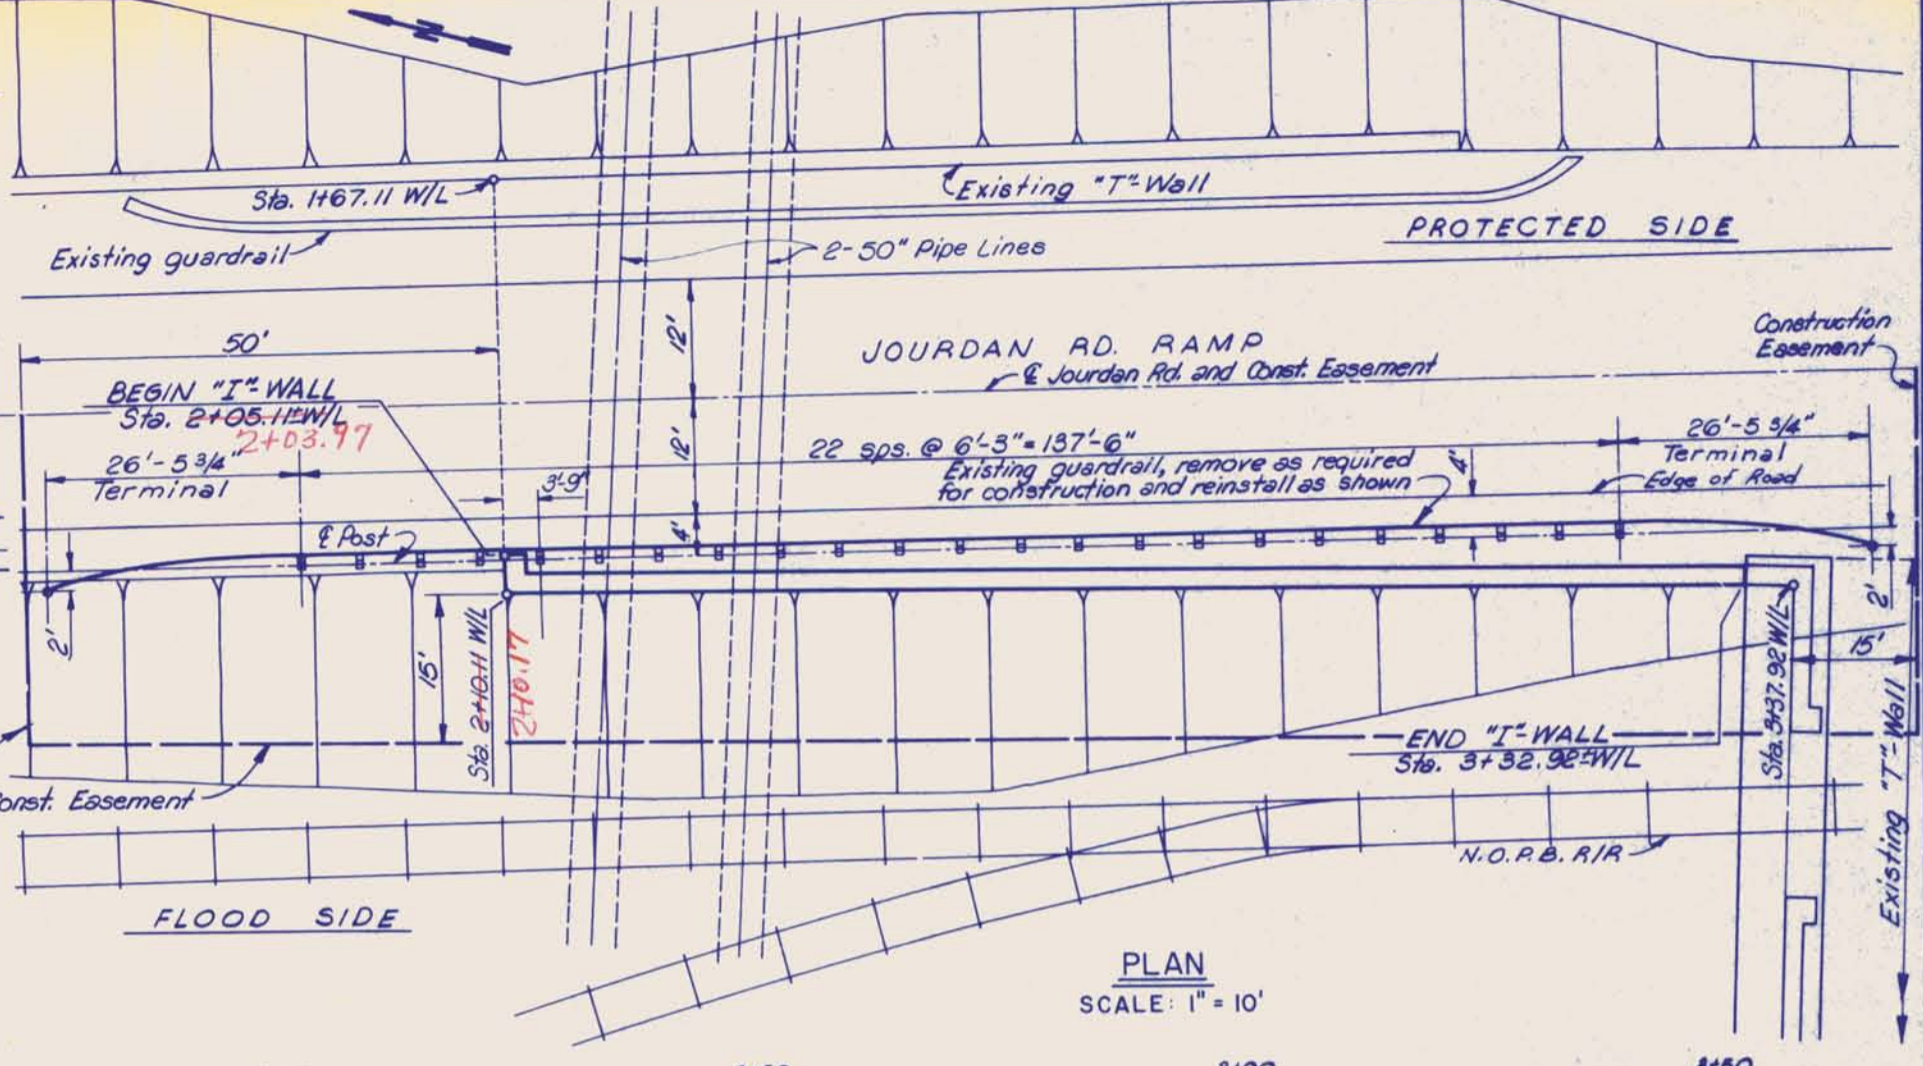 N
Sta. 1+67.11 W/L
Existing "T"-Wall
PROTECTED SIDE
Existing guardrail
2-50" Pipe Lines
50'
12'
JOURDAN RD. RAMP
℄ Jourdan Rd. and Const. Easement
Construction
Easement
BEGIN "I"-WALL
Sta. 2+05.11±W/L
2+03.97
26'-5 3/4"
Terminal
3'-9"
12'
22 sps. @ 6'-3" = 137'-6"
Existing guardrail, remove as required
for construction and reinstall as shown
4'
26'-5 3/4"
Terminal
Edge of Road
℄ Post
4'
2'
15'
Sta. 2+10.11 W/L
2+10.17
2'
15'
Sta. 3+37.92 W/L
END "I"-WALL
Sta. 3+32.92±W/L
Existing "T"-Wall
Const. Easement
N.O.P.B. R/R
FLOOD SIDE
PLAN
SCALE: 1" = 10'